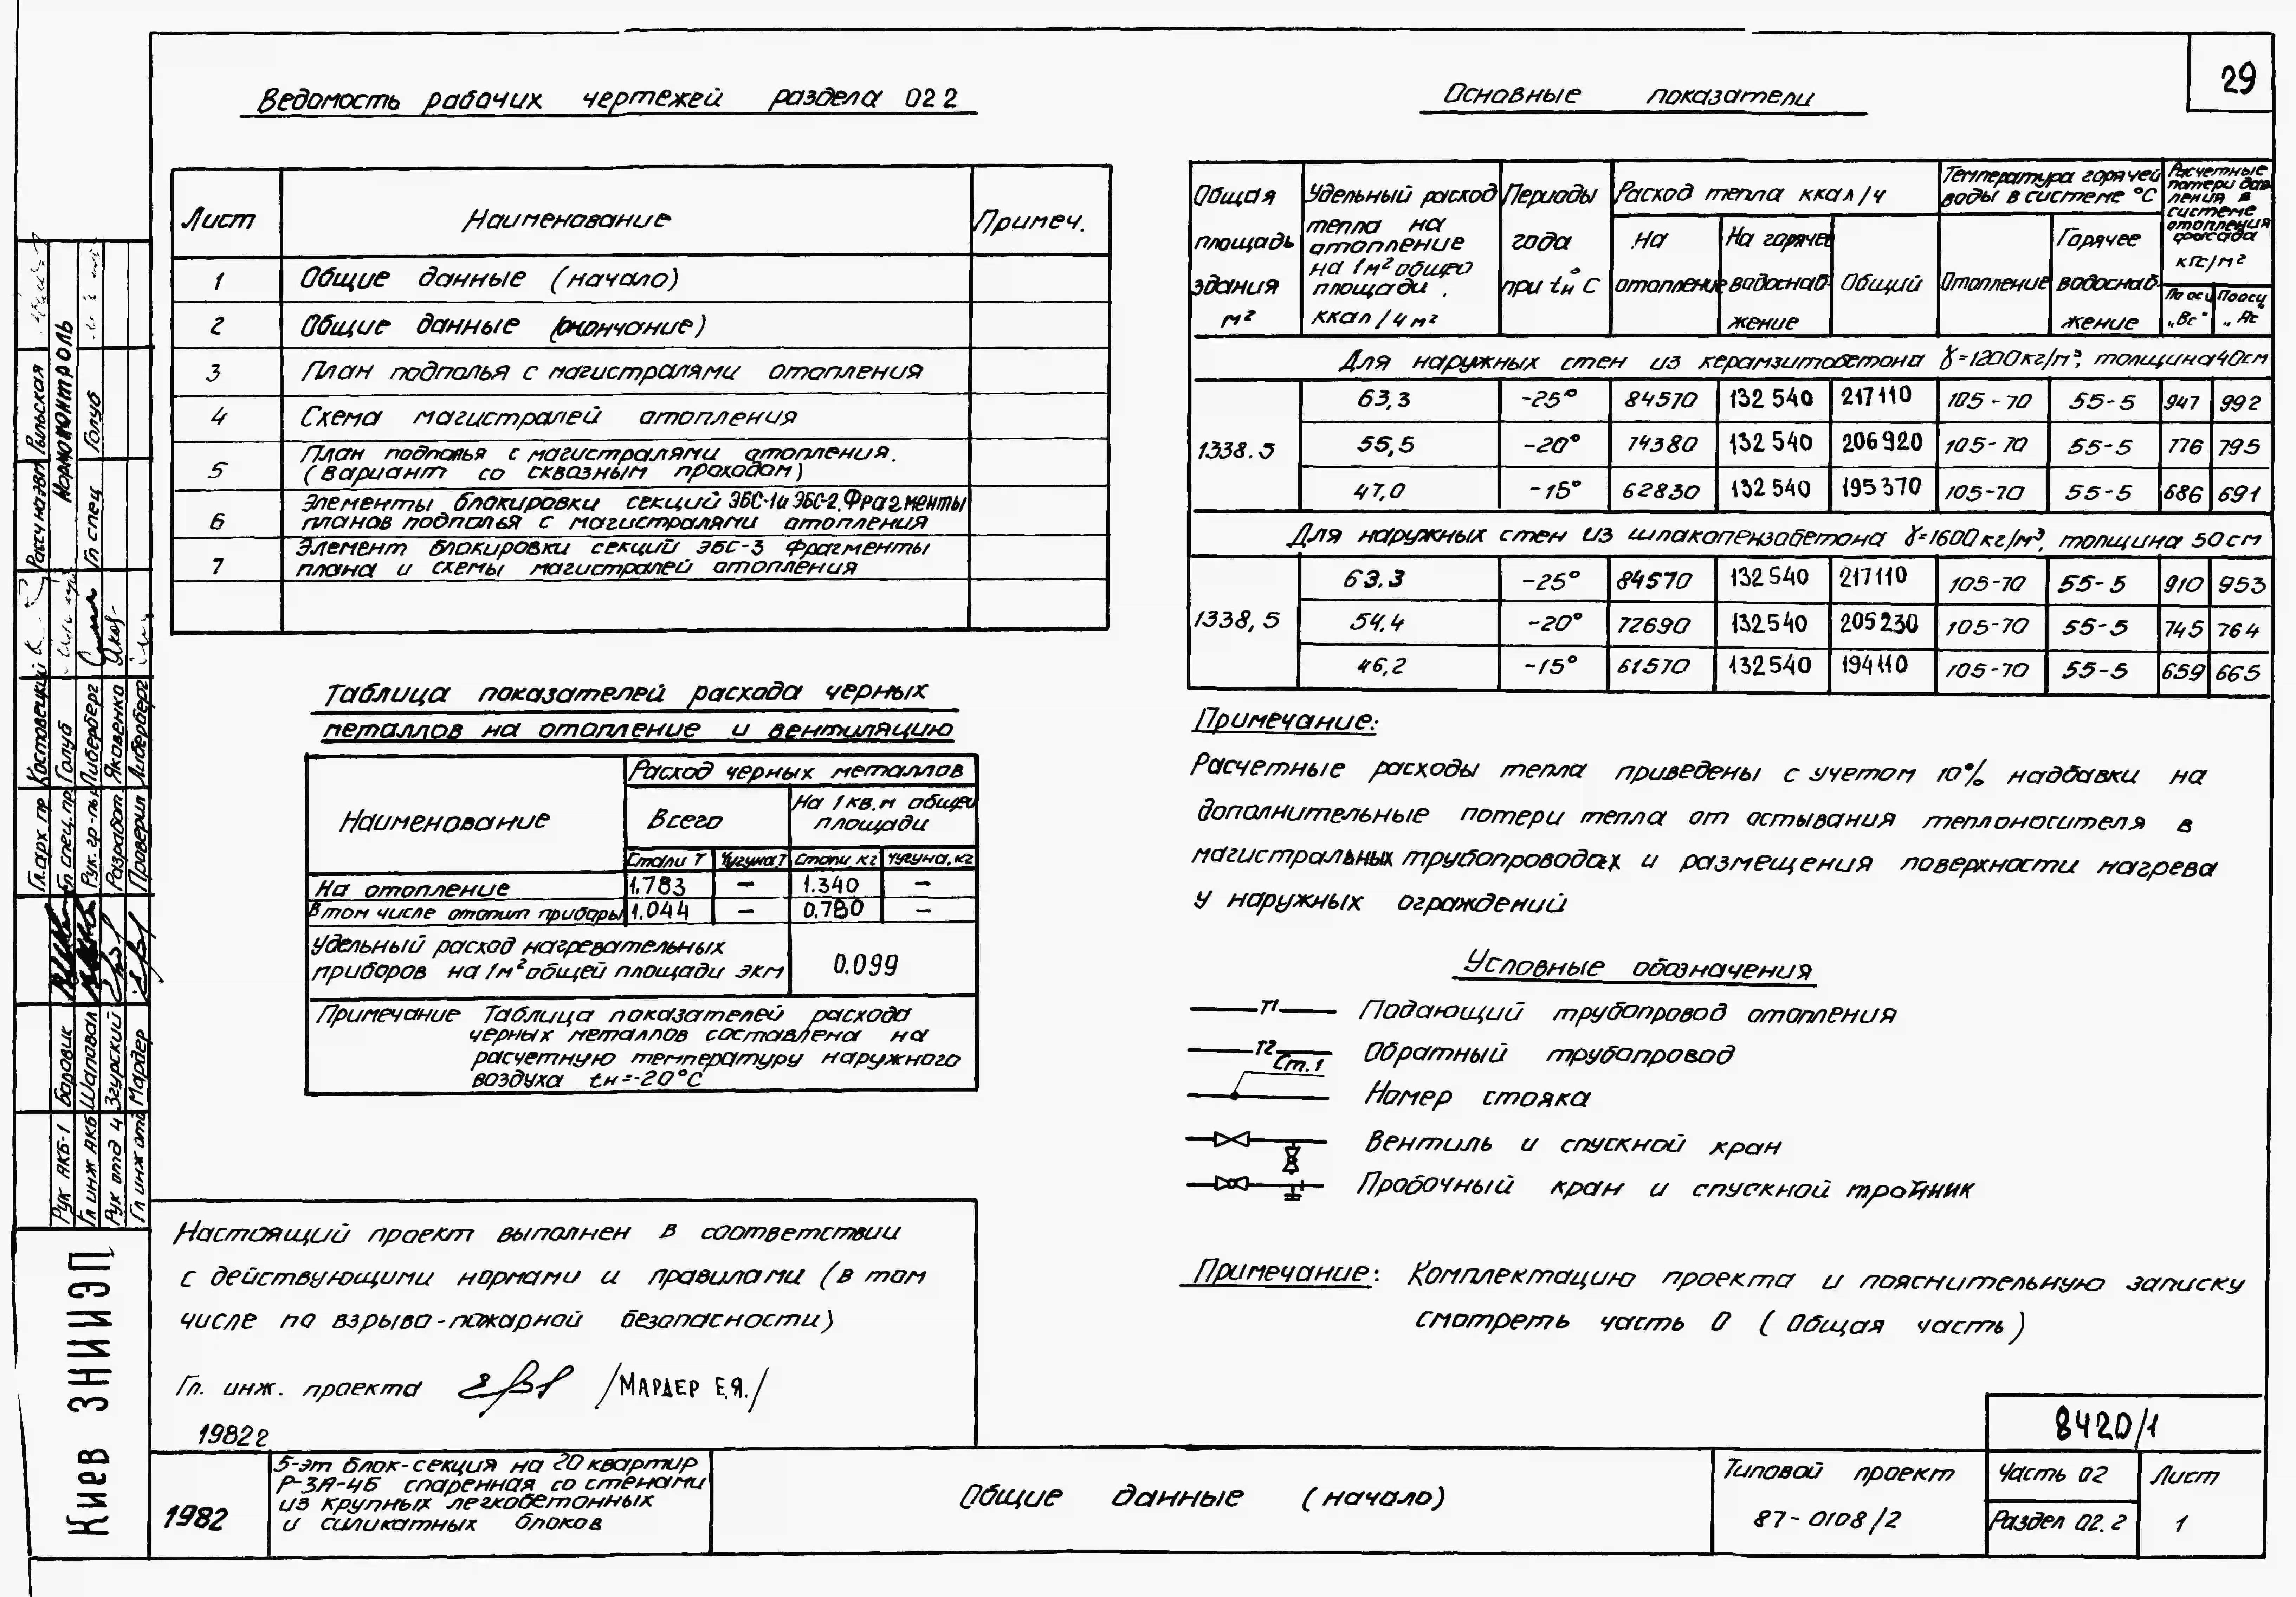 29
Ведомость рабочих чертежей раздела 02 2
Лист Наименование Примеч.
1 Общие данные (начало)
2 Общие данные (окончание)
3 План подполья с магистралями отопления
4 Схема магистралей отопления
5 План подполья с магистралями отопления.
(вариант со сквозным проходом)
6 Элементы блокировки секций ЭБС-1и ЭБС-2. Фрагменты
планов подполья с магистралями отопления
7 Элемент блокировки секций ЭБС-3 Фрагменты
плана и схемы магистралей отопления
Таблица показателей расхода черных
металлов на отопление и вентиляцию
Наименование
Расход черных металлов
Всего
На 1 кв.м общей
площади
Стали Т Чугуна Т Стали, кг Чугуна, кг
На отопление 1.783 — 1.340 —
В том числе отопит приборы 1.044 — 0.780 —
Удельный расход нагревательных
приборов на 1м² общей площади экм 0.099
Примечание Таблица показателей расхода
черных металлов составлена на
расчетную температуру наружного
воздуха tн=-20°С
Настоящий проект выполнен в соответствии
с действующими нормами и правилами (в том
числе по взрыво-пожарной безопасности)
Гл. инж. проекта /Мардер Е.Я./
1982г
Основные показатели
Общая площадь здания м²
Удельный расход тепла на отопление на 1м² общей площади, ккал/ч м²
Периоды года при tн°С
Расход тепла ккал/ч
На отопление
На горячее водоснабжение
Общий
Температура горячей воды в системе °С
Отопление
Горячее водоснабжение
Расчетные потери давления в системе отопления фасада кгс/м²
По оси „Вс"
По оси „Ас
Для наружных стен из керамзитобетона γ=1200кг/м³, толщина 40см
1338.5
63,3 -25° 84570 132 540 217110 105-70 55-5 947 992
55,5 -20° 74380 132 540 206920 105-70 55-5 776 795
47,0 -15° 62830 132 540 195370 105-70 55-5 686 691
Для наружных стен из шлакопемзобетона γ=1600кг/м³, толщина 50см
1338,5
63.3 -25° 84570 132 540 217110 105-70 55-5 910 953
54,4 -20° 72690 132540 205230 105-70 55-5 745 764
46,2 -15° 61570 132540 194110 105-70 55-5 659 665
Примечание:
Расчетные расходы тепла приведены с учетом 10% надбавки на
дополнительные потери тепла от остывания теплоносителя в
магистральных трубопроводах и размещения поверхности нагрева
у наружных ограждений
Условные обозначения
Т1 Подающий трубопровод отопления
Т2 Обратный трубопровод
Ст.1 Номер стояка
Вентиль и спускной кран
Пробочный кран и спускной тройник
Примечание: Комплектацию проекта и пояснительную записку
смотреть часть 0 (Общая часть)
8420/1
1982
5-эт блок-секция на 20 квартир
Р-3А-4Б спаренная со стенами
из крупных легкобетонных
и силикатных блоков
Общие данные (начало)
Типовой проект
87-0108/2
Часть 02
Раздел 02.2
Лист
1
Киев ЗНИИЭП
Рук АКБ-1 Боровик
Гл инж АКБ Шаповал
Рук отд 4 Згурский
Гл инж отд Мардер
Гл.арх пр Костовецкий
Гл спец.пр Голуб
Рук.гр-пы Либерберг
Разработ. Яковенко
Проверил Либерберг
Рольская
Нормоконтроль
Гл спец Голуб